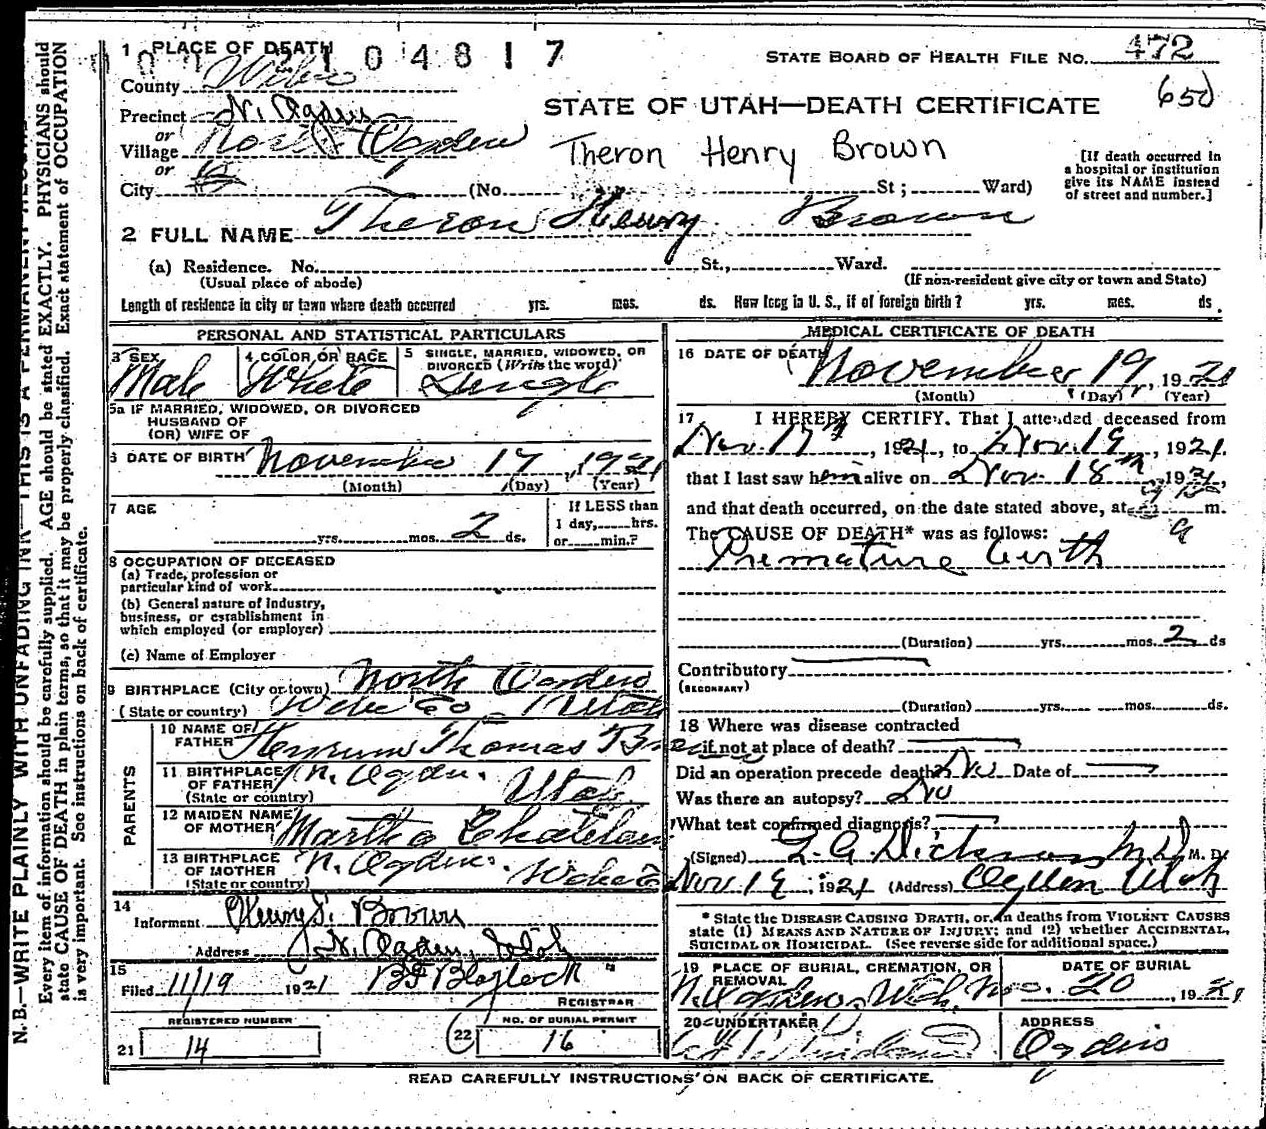 1 PLACE OF DEATH
2104817
STATE BOARD OF HEALTH FILE NO. 472
County
650
Precinct N. Ogden
STATE OF UTAH—DEATH CERTIFICATE
or
Village North Ogden
Theron Henry Brown
or
City (No. St; Ward)
[If death occurred in
a hospital or institution
give its NAME instead
of street and number.]
2 FULL NAME Theron Henry Brown
(a) Residence. No. St., Ward.
(Usual place of abode) (If non-resident give city or town and State)
Length of residence in city or town where death occurred yrs. mos. ds. How long in U. S., if of foreign birth? yrs. mos. ds.
PERSONAL AND STATISTICAL PARTICULARS
3 SEX
Male
4 COLOR OR RACE
White
5 SINGLE, MARRIED, WIDOWED, OR
DIVORCED (Write the word)
Single
5a IF MARRIED, WIDOWED, OR DIVORCED
HUSBAND OF
(OR) WIFE OF
6 DATE OF BIRTH November 17, 1921
(Month) (Day) (Year)
7 AGE
yrs. mos. 2 ds.
If LESS than
1 day, hrs.
or min.?
8 OCCUPATION OF DECEASED
(a) Trade, profession or
particular kind of work
(b) General nature of Industry,
business, or establishment in
which employed (or employer)
(c) Name of Employer
9 BIRTHPLACE (City or town) North Ogden
(State or country) Utah
PARENTS
10 NAME OF
FATHER Thomas
11 BIRTHPLACE
OF FATHER N. Ogden.
(State or country) Utah
12 MAIDEN NAME
OF MOTHER Martha
13 BIRTHPLACE
OF MOTHER N. Ogden.
(State or country)
14
Informant Henry T. Brown
Address N. Ogden, Utah
15
Filed 11/19 1921
REGISTRAR
REGISTERED NUMBER
21 14
NO. OF BURIAL PERMIT
22 16
MEDICAL CERTIFICATE OF DEATH
16 DATE OF DEATH November 19, 1921
(Month) (Day) (Year)
17 I HEREBY CERTIFY. That I attended deceased from
Nov. 17th, 1921, to Nov. 19, 1921.
that I last saw him alive on Nov. 18th 1921,
and that death occurred, on the date stated above, at m.
The CAUSE OF DEATH* was as follows:
Premature birth
(Duration) yrs. mos. 2 ds
Contributory
(SECONDARY)
(Duration) yrs. mos. ds.
18 Where was disease contracted
if not at place of death?
Did an operation precede death? No Date of
Was there an autopsy? No
What test confirmed diagnosis?
(Signed) M.D. M. D.
Nov 19, 1921 (Address) Ogden Utah
* State the DISEASE CAUSING DEATH, or, in deaths from VIOLENT CAUSES
state (1) MEANS AND NATURE OF INJURY; and (2) whether ACCIDENTAL,
SUICIDAL OR HOMICIDAL. (See reverse side for additional space.)
19 PLACE OF BURIAL, CREMATION, OR
REMOVAL
N. Ogden,
DATE OF BURIAL
Nov. 20, 1921
20 UNDERTAKER
ADDRESS
Ogden
READ CAREFULLY INSTRUCTIONS ON BACK OF CERTIFICATE.
N. B.—WRITE PLAINLY WITH UNFADING INK—THIS IS A PERMANENT
Every item of information should be carefully supplied. AGE should be stated EXACTLY. PHYSICIANS should
state CAUSE OF DEATH in plain terms, so that it may be properly classified. Exact statement of OCCUPATION
is very important. See instructions on back of certificate.